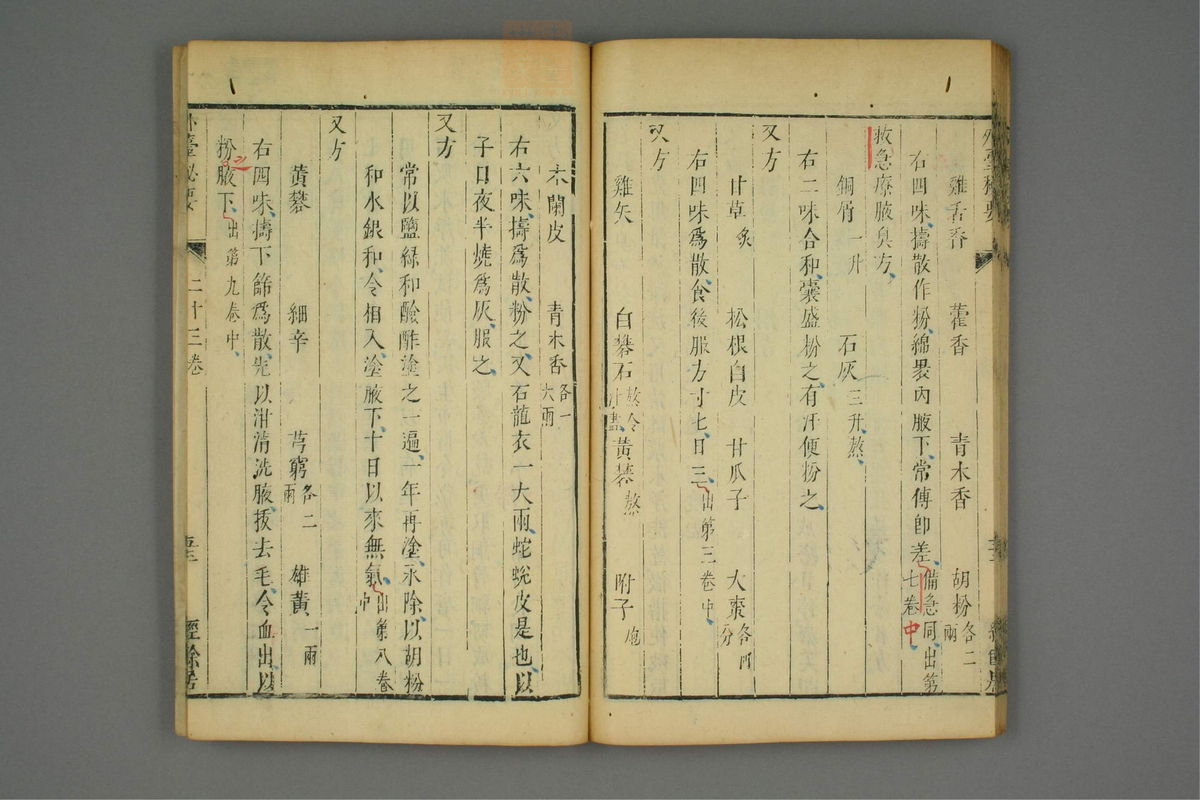 雞舌香 藿香 青木香 胡粉各二兩
右四味擣散作粉綿裹內腋下常傅卽差備急同出第七卷中
救急療腋臭方
銅屑一升 石灰三升熬
右二味合和囊盛粉之有汗便粉之
又方
甘草炙 松根白皮 甘瓜子 大棗各四分
右四味爲散食後服方寸匕日三出第三卷中
又方
雞矢 白礬石 黃礬熬 附子炮
木蘭皮 青木香各一大兩
右六味擣爲散粉之又石龍衣一大兩蛇蛻皮是也以
子日夜半燒爲灰服之
又方
常以鹽綠和醶酢塗之一遍一年再塗永除以胡粉
和水銀和令相入塗腋下十日以來無氣出第八卷中
又方
黃礬 細辛 芎窮各二兩 雄黃一兩
右四味擣下篩爲散先以泔清洗腋拔去毛令血出以
粉腋下出第九卷中
外臺秘要 二十三卷 經餘居